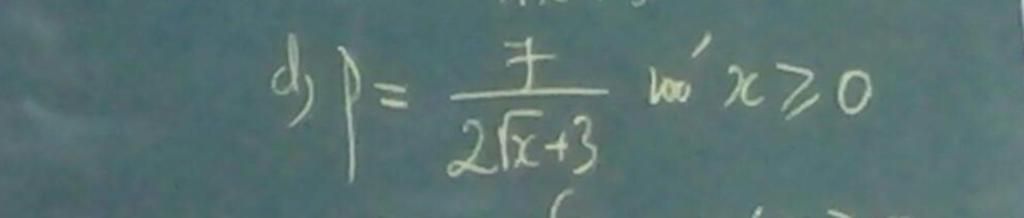 d) P = 7 / (2√x + 3) với x ≥ 0